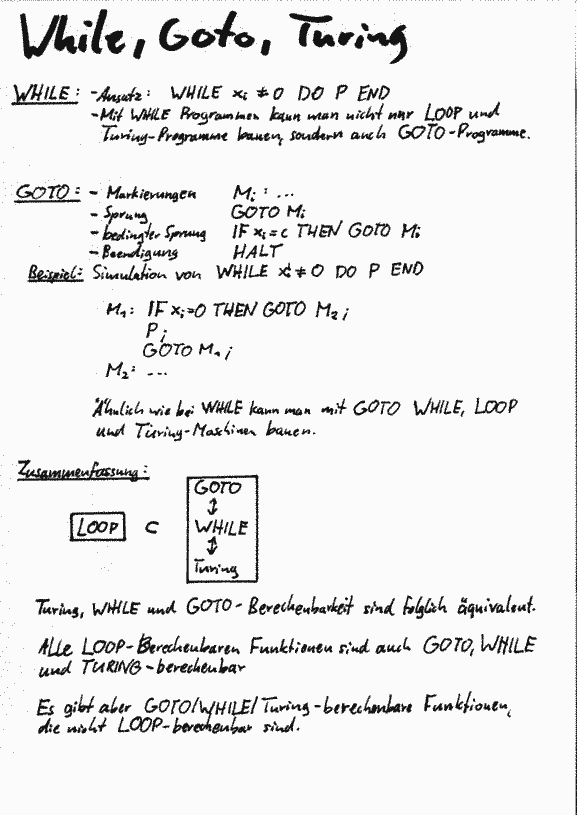 While, Goto, Turing
WHILE: - Ansatz: WHILE xᵢ ≠ 0 DO P END
- Mit WHILE Programmen kann man nicht nur LOOP und
Turing-Programme bauen, sondern auch GOTO-Programme.
GOTO: - Markierungen Mᵢ: ...
- Sprung GOTO Mᵢ
- bedingter Sprung IF xᵢ=c THEN GOTO Mᵢ
- Beendigung HALT
Beispiel: Simulation von WHILE xᵢ ≠ 0 DO P END
M₁: IF xᵢ=0 THEN GOTO M₂;
P;
GOTO M₁;
M₂: ...
Ähnlich wie bei WHILE kann man mit GOTO WHILE, LOOP
und Turing-Maschinen bauen.
Zusammenfassung:
GOTO
↕
LOOP ⊂ WHILE
↕
Turing
Turing, WHILE und GOTO-Berechenbarkeit sind folglich äquivalent.
Alle LOOP-Berechenbaren Funktionen sind auch GOTO, WHILE
und TURING-berechenbar
Es gibt aber GOTO/WHILE/Turing-berechenbare Funktionen,
die nicht LOOP-berechenbar sind.